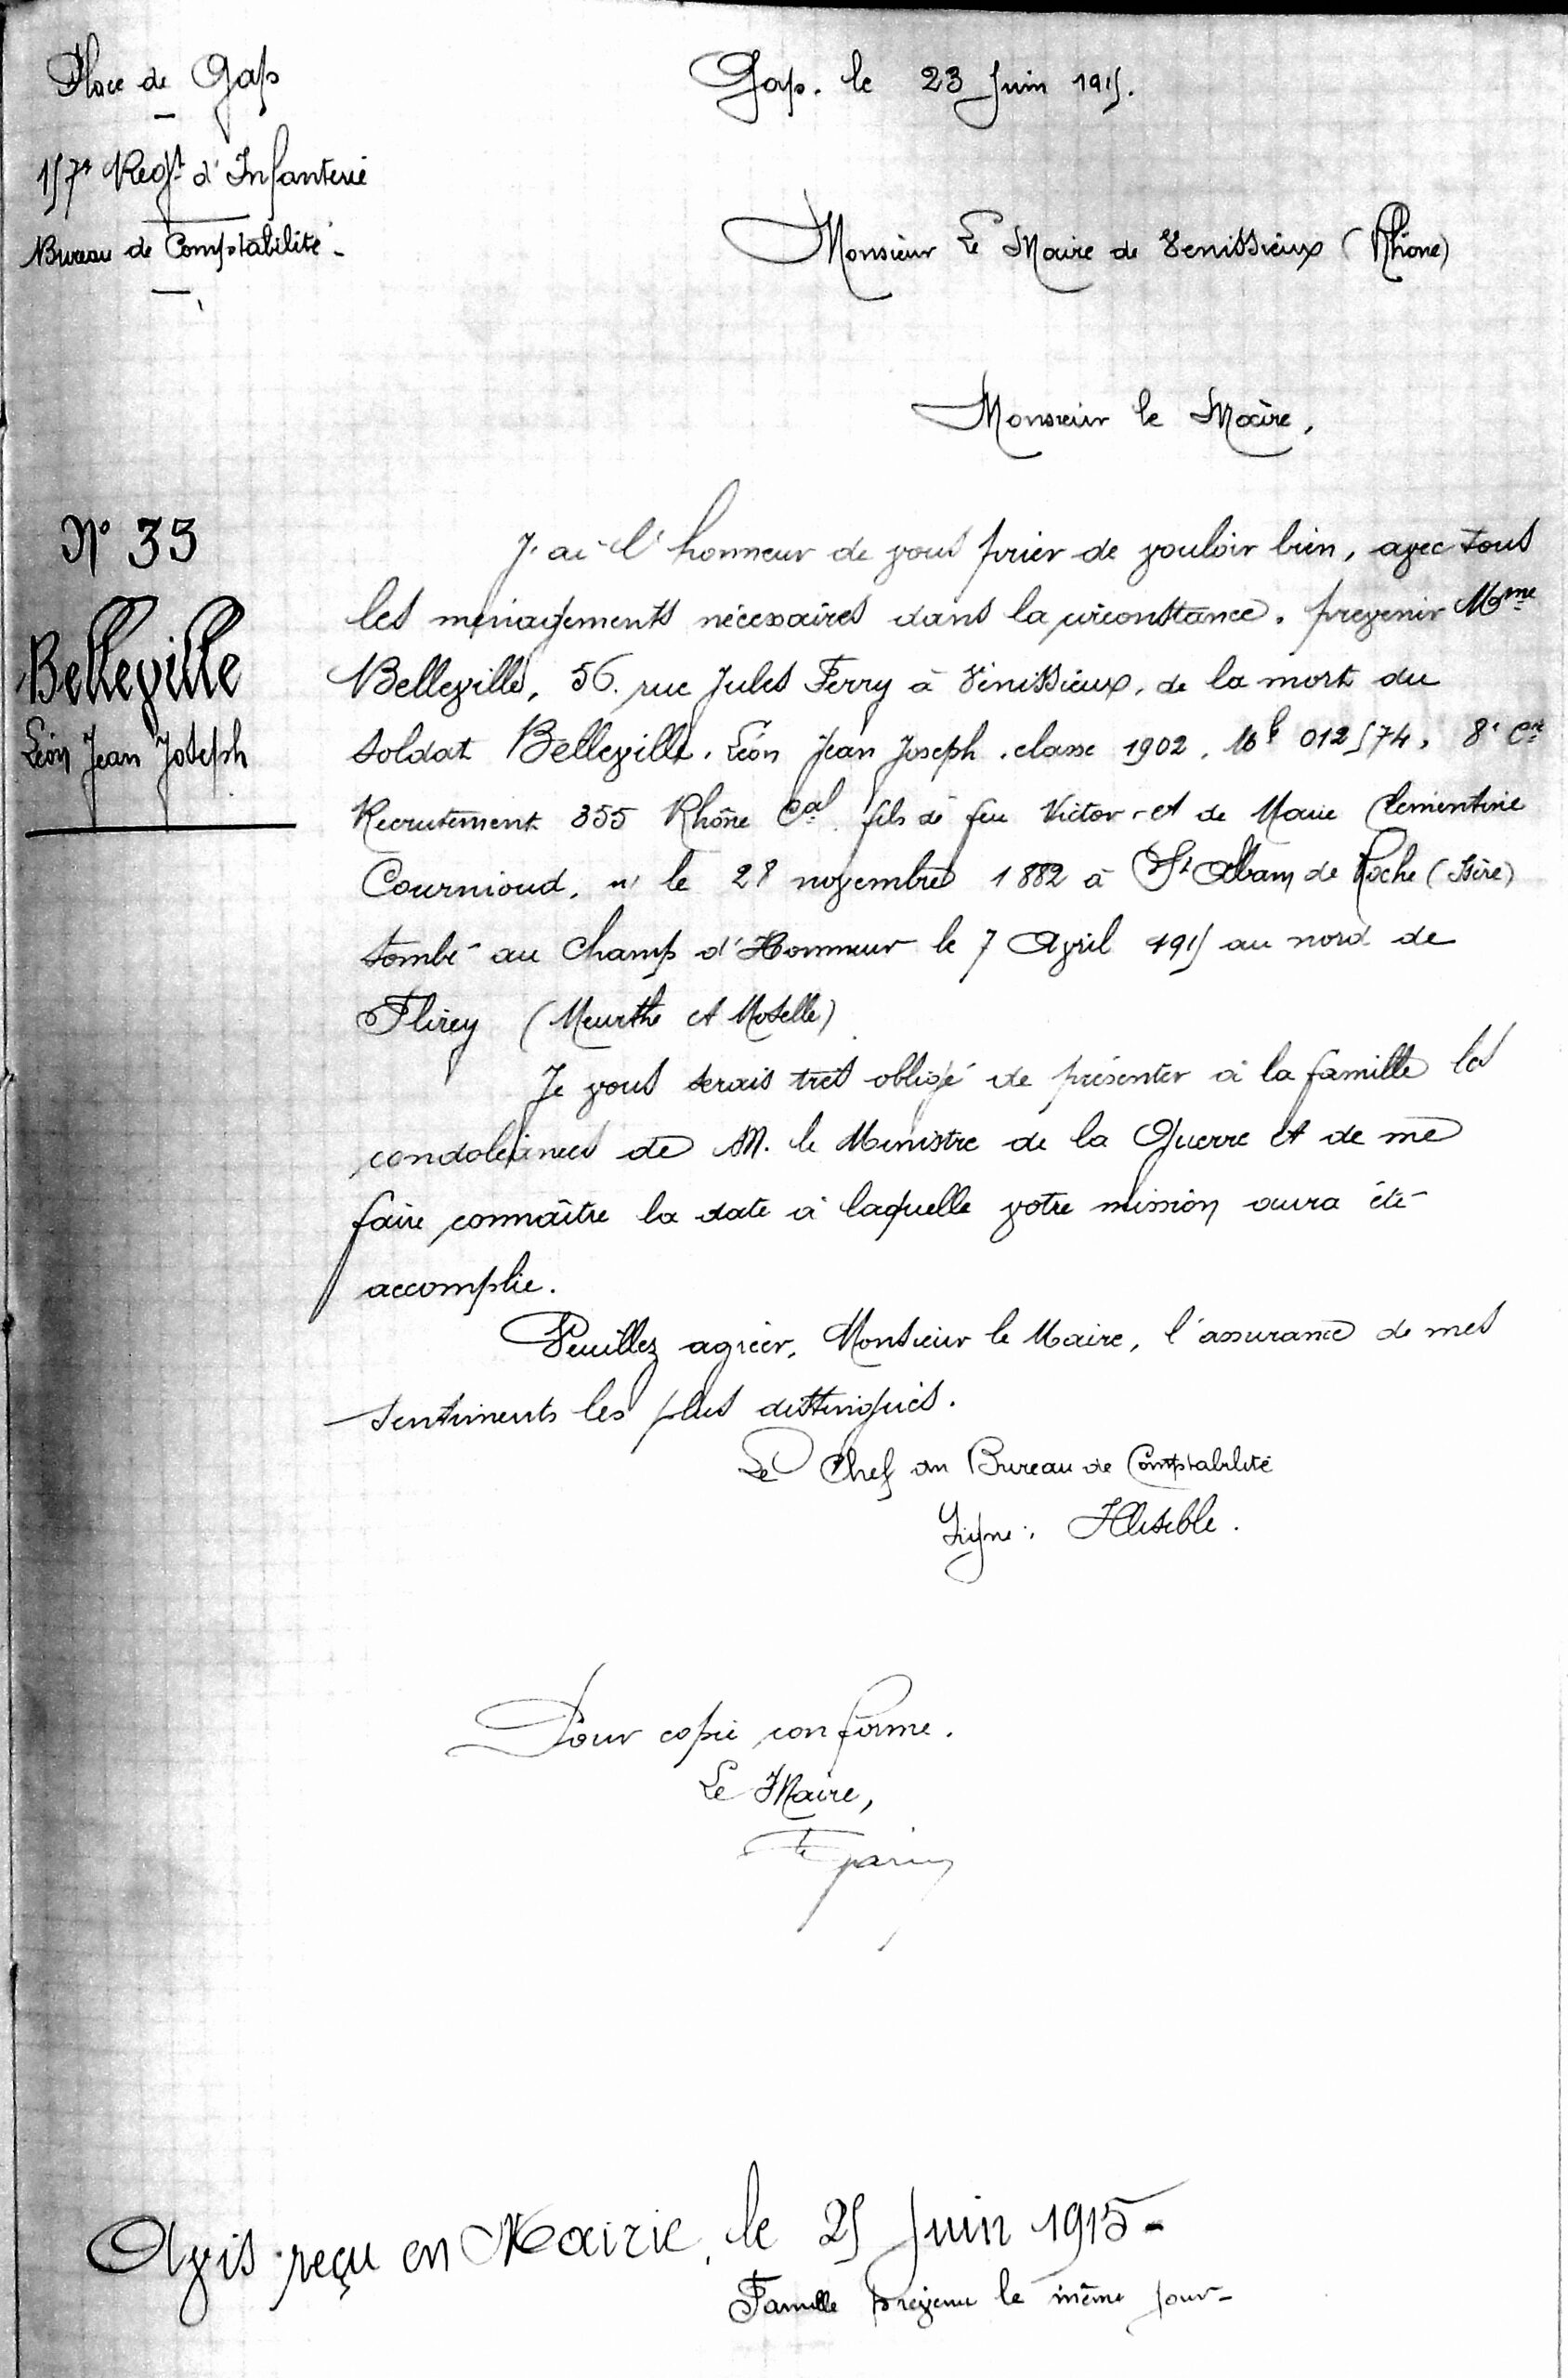 Place de Gap
Gap. le 23 Juin 1915.
157e Regt d'Infanterie
Bureau de Comptabilité -
Monsieur Le Maire de Venissieux (Rhône)
Monsieur le Maire,
N° 35
Belleville
Léon Jean Joseph
J'ai l'honneur de vous prier de vouloir bien, avec tous
les ménagements nécessaires dans la circonstance. prevenir Mme
Belleville, 56. rue Jules Ferry à Vénissieux, de la mort du
soldat Belleville. Léon Jean Joseph. classe 1902. Mle 012574. 8e Cie
Recrutement 355 Rhône Cal fils de feu Victor et de Marie Clementine
Cournioud, né le 28 novembre 1882 à St Alban de Roche (Isère)
tombé au Champ d'Honneur le 7 Avril 1915 au nord de
Flirey (Meurthe et Moselle)
Je vous serais très obligé de présenter à la famille les
condoléances de M. le Ministre de la Guerre et de me
faire connaître la date à laquelle votre mission aura été
accomplie.
Veuillez agréer, Monsieur le Maire, l'assurance de mes
sentiments les plus distingués.
Le Chef du Bureau de Comptabilité
Signé: Illisible.
Pour copie conforme.
Le Maire,
Avis reçu en Mairie, le 25 Juin 1915 -
Famille prévenue le même jour -